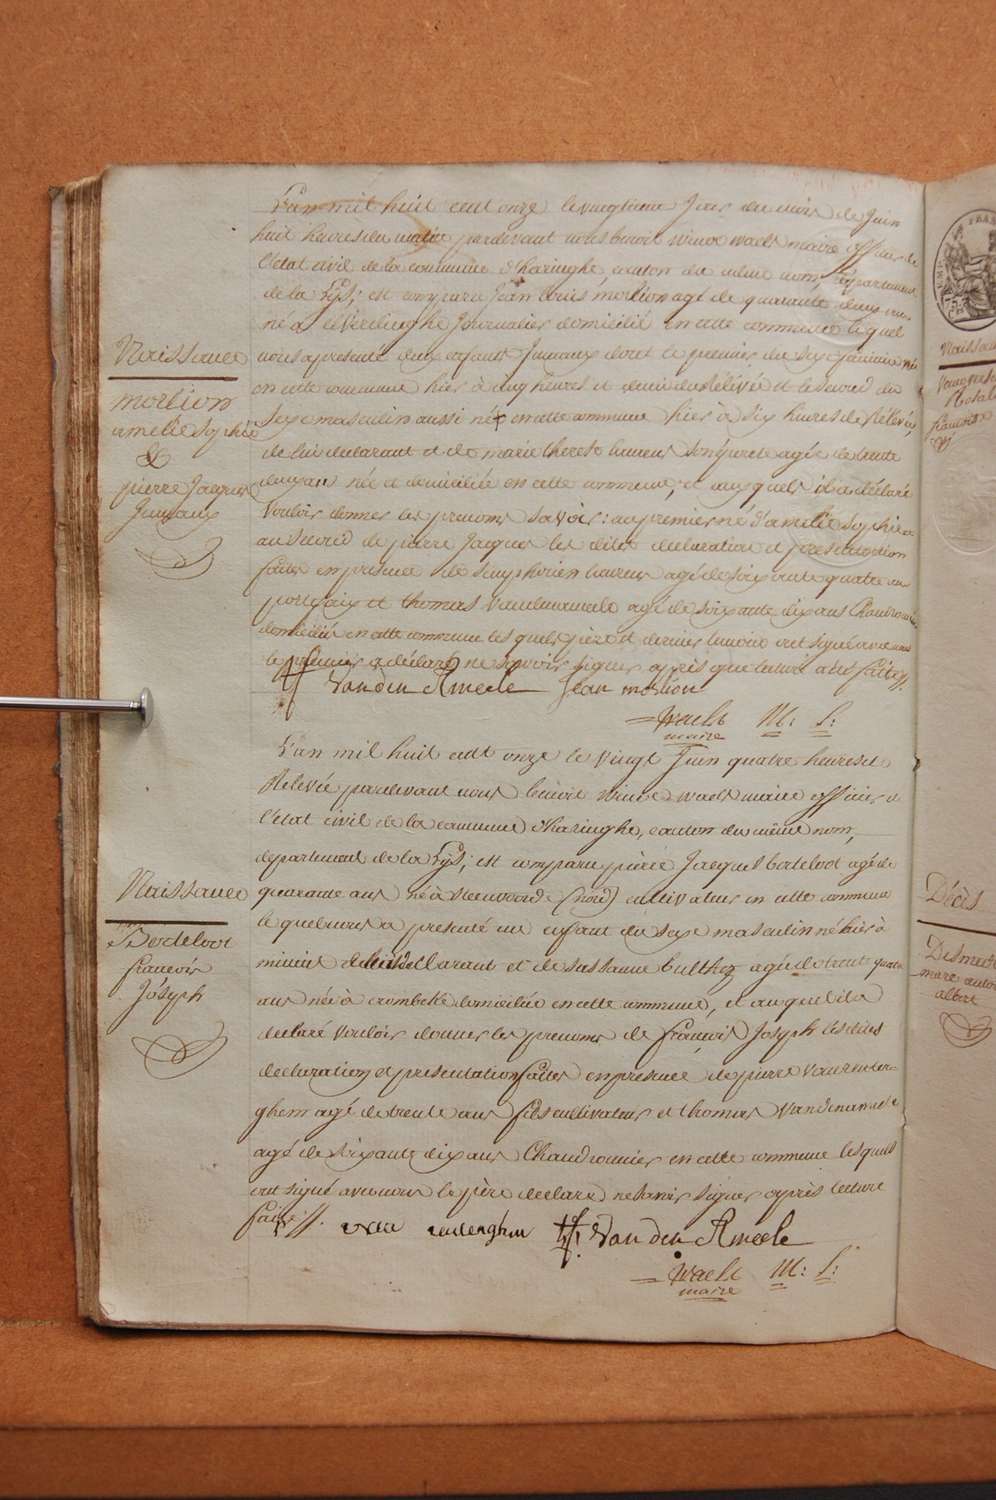 L'an mil huit cent onze le vingtieme Jour du mois de Juin
huit heures du matin pardevant nous benoit winoc waels maire officier de
l'état civil de la commune d'haringhe, canton du même nom, département
de la Lys; est comparu Jean louis morlion agé de quarante deux ans
né à Journalier domicilié en cette commune lequel
nous a presenté deux enfants Jumaux dont le premier du Sexe féminin né
en cette commune hier à cinq heures et demi de Relévée et le second du
Sexe masculin aussi né en cette commune hier à six heures de Rélévée,
de lui declarant et de marie therese Son épouse agée de trente
deux ans née et domiciliée en cette commune, et auxquels il a declaré
Vouloir donner les prenoms Savoir: au premier né d'amelie Sophie et
au Second de pierre Jacques les dites declaration et presentation
faites en presence de Simphorien agé de soixante quatre ans
et thomas Vandenameele agé de soixante dix ans Chaudronnier
domiciliés en cette commune lesquels père et dernier temoin ont signé avec nous
le premier a déclaré ne Savoir signer après que lecture a été faite
Van den Ameele Jean morlion
Waels M: S:
maire
Naissance
morlion
amelie Sophie
&
pierre Jacques
Jumaux
L'an mil huit cent onze le vingt Juin quatre heures de
Relevée pardevant nous benoit winoc waels maire officier de
l'état civil de la commune d'haringhe, canton du même nom,
departement de la Lys; est comparu pierre Jacques berteloot agé de
quarante ans né à Steenvoorde (nord) cultivateur en cette commune
lequel nous a presenté un enfant du Sexe masculin né hier à
minuit de lui declarant et de Sussanne bulthez agée de trente quatre
ans née à crombeke domiciliée en cette commune, et auquel il a
declaré Vouloir donner les prenoms de françois Joseph les dites
declaration et presentation faites en presence de pierre Vanrenter-
ghem agé de trente ans fils cultivateur et thomas Vandenameele
agé de soixante dix ans Chaudronnier en cette commune lesquels
ont signé avec nous le père declaré ne Savoir signer après lecture
faite
Van den Ameele
Waels M: S:
maire
Naissance
Berteloot
francois
Joseph
Naissance
Rosalie
Décès
albert